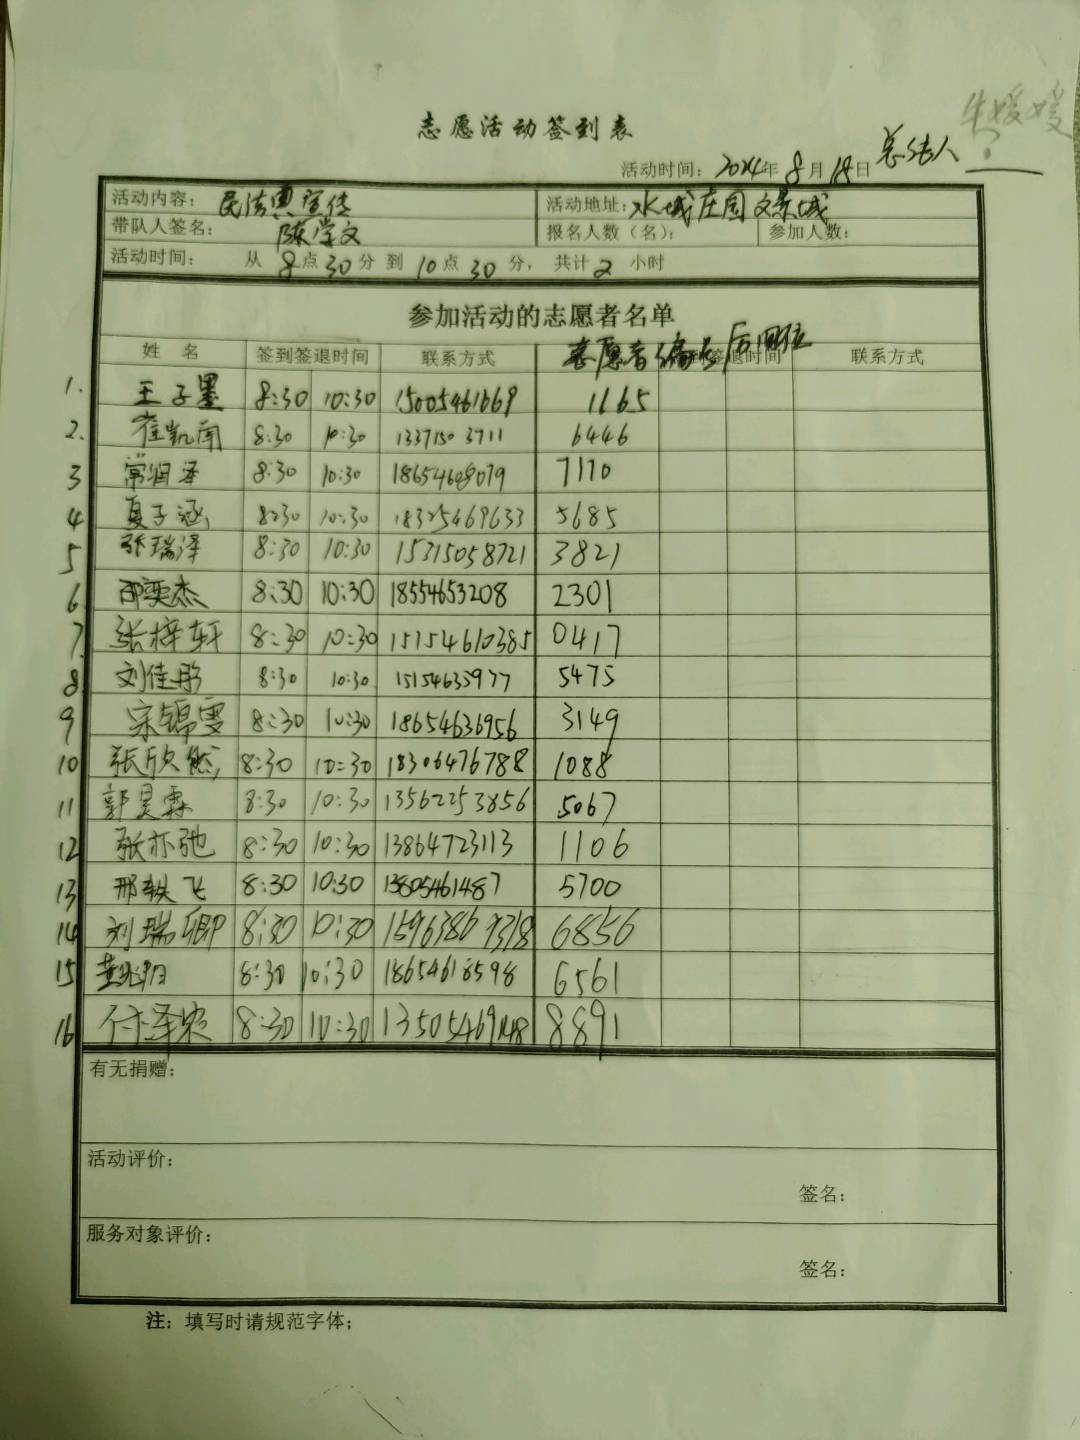 志愿活动签到表
活动时间：2024年8月18日 总结人
活动内容：民法典宣传 活动地址：水城庄园文景城
带队人签名：陈学文 报名人数（名）： 参加人数：
活动时间： 从8点30分到10点30分，共计2小时
参加活动的志愿者名单
姓 名 签到签退时间 联系方式 志愿者编号后四位 签退时间 联系方式
1. 王子墨 8:30 10:30 15005461669 1165
2. 崔凯南 8:30 10:30 13371503711 6446
3 常润泽 8:30 10:30 18654608079 7170
4 夏子涵 8:30 10:30 18325469633 5685
5 张瑞泽 8:30 10:30 15315058721 3821
6. 邵奕杰 8:30 10:30 18554653208 2301
7. 张梓轩 8:30 10:30 15154610385 0417
8. 刘佳彤 8:30 10:30 15154635977 5475
9 宋锦雯 8:30 10:30 18654636956 3149
10 张欣然 8:30 10:30 18306476788 1088
11 郭昊霖 8:30 10:30 13562253856 5067
12 张亦弛 8:30 10:30 13864723113 1106
13 邢轶飞 8:30 10:30 13805461487 5700
14 刘瑞卿 8:30 10:30 6856
15 8:30 10:30 18654618598 6561
16 付泽农 8:30 10:30 13505469148 8891
有无捐赠：
活动评价：
签名：
服务对象评价：
签名：
注：填写时请规范字体；